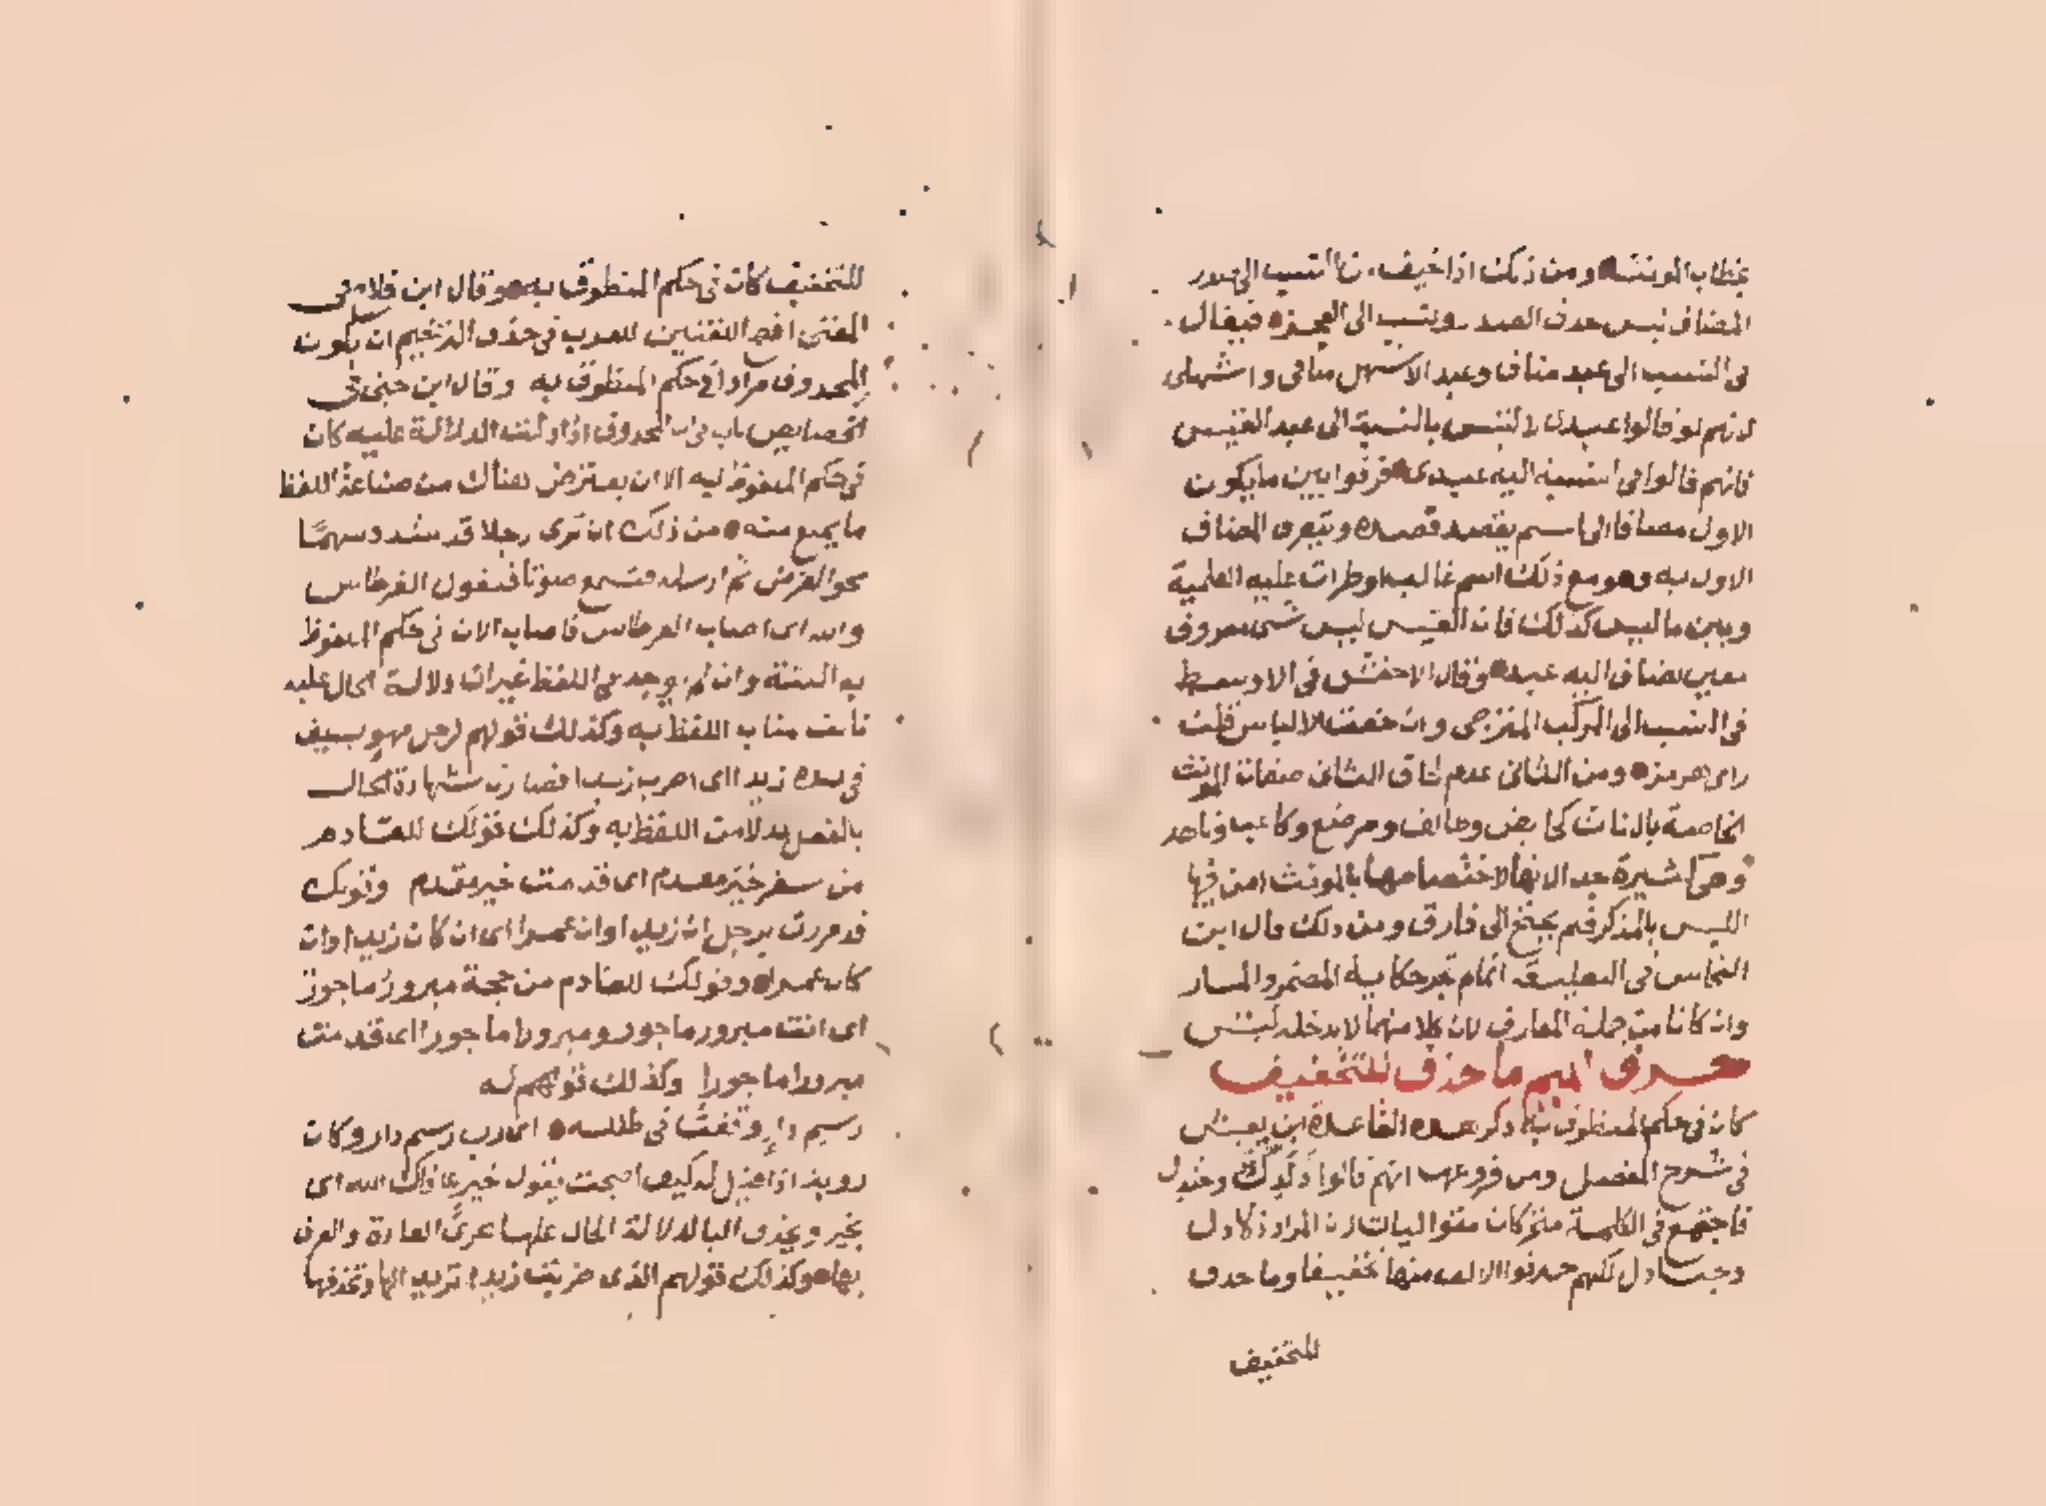 بخطاب المونث ومن ذلك اذا خيف من النسب الى صدر
المضاف لبس حذف الصدر ونسب الى العجز فيقال
فى النسب الى عبد مناف وعبد الاشهل منافى واشهلى
لانهم لو قالوا عبدى لالتبس بالنسبة الى عبد القيس
فانهم قالوا فى النسبة اليه عبدى فرقوا بين ما يكون
الاول مضافا الى اسم يقصد قصده ويتعرف المضاف
الاول به وهو مع ذلك اسم غالب او طرات عليه العلمية
وبين ما ليس كذلك فان القيس ليس شى معروف
معين يضاف اليه عبد وقال الاخفش فى الاوسط
فى النسب الى المركب المزجى وان خفت الالباس قلت
رامى هرمزى ومن الثانى عدم لحاق التا فى صفات المونث
الخاصة بالاناث كحايض وطالق ومرضع وكاعب وناهد
وهى كثيرة جدا لانها لاختصاصها بالمونث امن فيها
اللبس بالمذكر فلم يحتج الى فارق ومن ذلك قال ابن
النحاس فى التعليقة انما لم تجز حكاية المضمر والمشار
وان كانا من جملة المعارف لان كلا منهما لا يدخله لبس
حرف الميم ما حذف للتخفيف
كان فى حكم المنطوق به ذكر هذه القاعدة ابن يعيش
فى شرح المفصل ومن فروعها انهم قالوا ذلذل وجندل
فاجتمع فى الكلمة متحركات متواليات لان المراد ذلاذل
وجنادل لكنهم حذفوا الالف منها تخفيفا وما حذف
للتخفيف
للتخفيف كان فى حكم المنطوق به وقال ابن فلاح فى
المغنى افصح اللغتين للعرب فى حذف الترخيم ان يكون
المحذوف مرادا فى حكم المنطوق به وقال ابن جنى فى
الخصايص باب فى ان المحذوف اذا دلت الدلالة عليه كان
فى حكم الملفوظ به الا ان يعترض هناك من صناعة اللفظ
ما يمنع منه من ذلك ان ترى رجلا قد سدد سهما
نحو الغرض ثم ارسله فتسمع صوتا فتقول القرطاس
والله اى اصاب القرطاس فاصاب الان فى حكم الملفوظ
به البتة وان لم يوجد فى اللفظ غير ان دلالة الحال عليه
نابت مناب اللفظ به وكذلك قولهم لرجل مهو بسيف
فى يده زيدا اى اضرب زيدا فصارت شهادة الحال
بالفعل بدلا من اللفظ به وكذلك قولك للقادم
من سفر خير مقدم اى قدمت خير مقدم وقولك
قد مررت برجل ان زيدا وان عمرا اى ان كان زيدا وان
كان عمرا وقولك للقادم من حجة مبرور ماجور
اى انت مبرور ماجور ومبرورا ماجورا اى قدمت
مبرورا ماجورا وكذلك قولهم له
رسم دار وقفت فى طلله اى رب رسم دار وكان
روبة اذا قيل له كيف اصبحت يقول خير عافاك الله اى
بخير ويحذف البا لدلالة الحال عليها بجرى العادة والعرف
بها وكذلك قولهم الذى ضربت زيد تريد الها وتحذفها